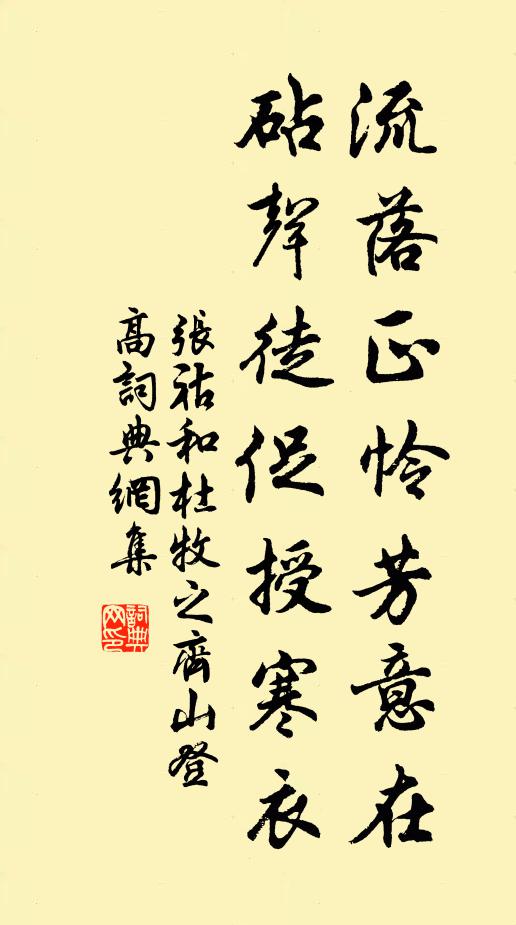 流落正怜芳意在
砧聲徒促授寒衣
張祜和杜牧之齊山登
高詞典網集
詞典網印